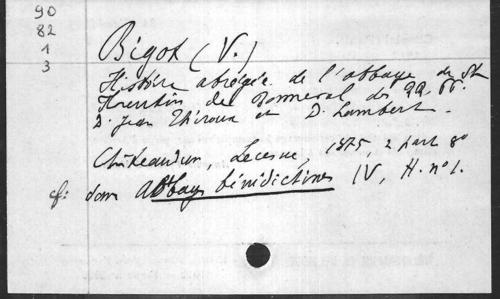 90
82
1
3
Bigot (V.)
Histoire abrégée de l'abbaye de St
Florentin de Bonneval des RR. PP.
D. Jean Thiroux et D. Lambert.
Châteaudun, Lecesne, 1875, 2 part 8°
cf: dom Abbayes bénédictines IV, H. n° 1.